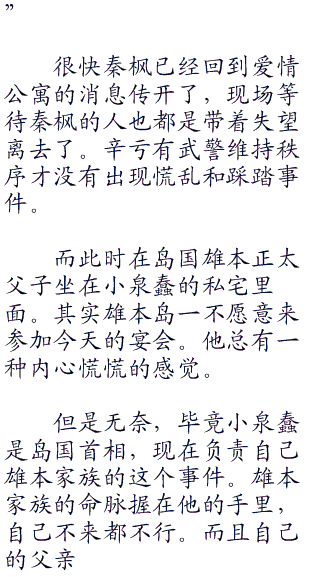 ”
很快秦枫已经回到爱情
公寓的消息传开了，现场等
待秦枫的人也都是带着失望
离去了。辛亏有武警维持秩
序才没有出现慌乱和踩踏事
件。
而此时在岛国雄本正太
父子坐在小泉蠢的私宅里
面。其实雄本岛一不愿意来
参加今天的宴会。他总有一
种内心慌慌的感觉。
但是无奈，毕竟小泉蠢
是岛国首相，现在负责自己
雄本家族的这个事件。雄本
家族的命脉握在他的手里，
自己不来都不行。而且自己
的父亲